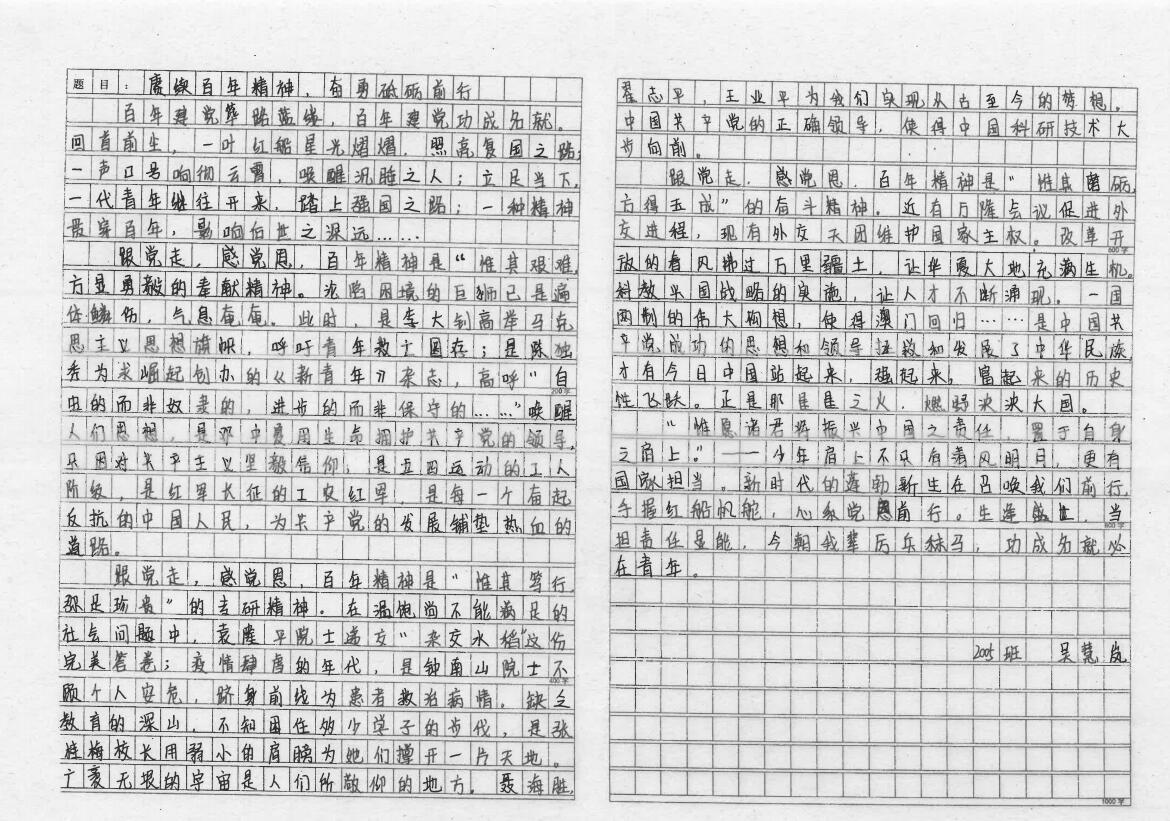 题目：赓续百年精神，奋勇砥砺前行
百年建党筚路蓝缕，百年建党功成名就。
回首前生，一叶红船星光熠熠，照亮复国之路；
一声口号响彻云霄，唤醒沉睡之人；立足当下，
一代青年继往开来，踏上强国之路；一种精神
贯穿百年，影响百世之深远……
跟党走，感党恩，百年精神是“惟其艰难，
方显勇毅的奉献精神。沦陷困境的巨狮已是遍
体鳞伤，气息奄奄。此时，是李大钊高举马克
思主义思想旗帜，呼吁青年救亡图存；是陈独
秀为求崛起创办的《新青年》杂志，高呼“自
由的而非奴隶的，进步的而非保守的……”唤醒
人们思想，是邓中夏用生命拥护共产党的领导，
只因对共产主义坚毅信仰，是五四运动的工人
阶级，是红军长征的工农红军，是每一个奋起
反抗的中国人民，为共产党的发展铺垫热血的
道路。
跟党走，感党恩，百年精神是“惟其笃行，
弥足珍贵”的专研精神。在温饱尚不能满足的
社会问题中，袁隆平院士递交“杂交水稻”这份
完美答卷；疫情肆虐的年代，是钟南山院士不
顾个人安危，跻身前线为患者救治病情。缺乏
教育的深山，不知困住多少学子的步伐，是张
桂梅校长用弱小的肩膀为她们撑开一片天地。
广袤无垠的宇宙是人们所敬仰的地方。聂海胜，
翟志平，王业平为我们实现从古至今的梦想。
中国共产党的正确领导，使得中国科研技术大
步向前。
跟党走，感党恩，百年精神是“惟其磨砺，
方得玉成”的奋斗精神。近有万隆会议促进外
交进程，现有外交天团维护国家主权。改革开
放的春风拂过万里疆土，让华夏大地充满生机。
科教兴国战略的实施，让人才不断涌现。一国
两制的伟大构想，使得澳门回归……是中国共
产党成功的思想和领导拯救和发展了中华民族
才有今日中国站起来，强起来，富起来的历史
性飞跃。正是那星星之火，燃野泱泱大国。
“惟愿诸君将振兴中国之责任，置于自身
之肩上。”——少年肩上不只有着风明月，更有
国家担当。新时代的蓬勃新生在召唤我们前行，
手握红船帆舵，心系党恩前行。生逢盛世，当
担责任显能，今朝我辈厉兵秣马，功成名就必
在青年。
2005班 吴慧岚
200字
400字
600字
800字
1000字